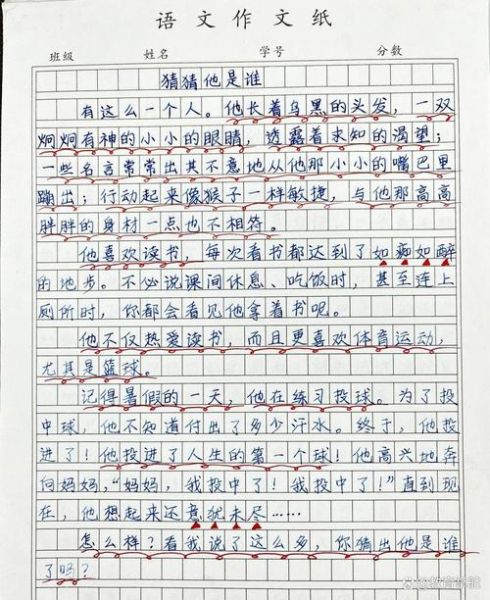 语文作文纸
班级 姓名 学号 分数
猜猜他是谁
有这么一个人。他长着乌黑的头发,一双
炯炯有神的小小的眼睛,透露着求知的渴望;
一些名言常常出其不意地从他那小小的嘴巴里
蹦出;行动起来像猴子一样敏捷,与他那高高
胖胖的身材一点也不相符。
他喜欢读书,每次看书都达到了如痴如醉
的地步。不必说课间休息、吃饭时,甚至连上
厕所时,你都会看见他拿着书呢。
他不仅热爱读书,而且更喜欢体育运动,
尤其是篮球。
记得暑假的一天,他在练习投球。为了投
中球,他不知道付出了多少汗水。终于,他投
进了!他投进了人生的第一个球!他高兴地奔
向妈妈,“妈妈,我投中了!我投中了!”直到现
在,他想起来还意犹未尽……
怎么样?看我说了这么多,你猜出他是谁
了吗?